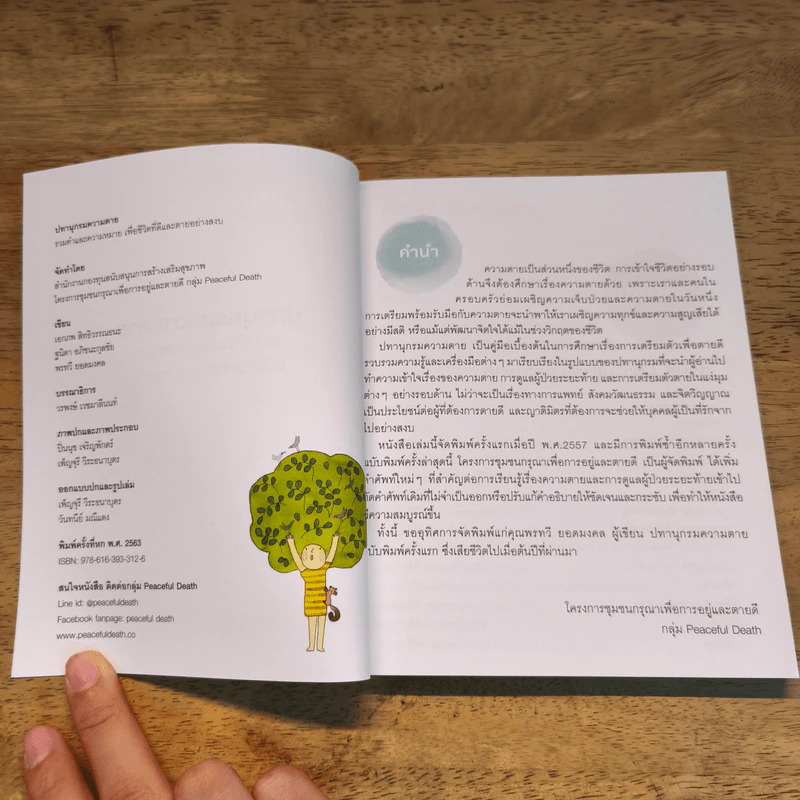 ปทานุกรมความตาย
รวมคำและความหมาย เพื่อชีวิตที่ดีและตายอย่างสงบ
จัดทำโดย
สำนักงานกองทุนสนับสนุนการสร้างเสริมสุขภาพ
โครงการชุมชนกรุณาเพื่อการอยู่และตายดี กลุ่ม Peaceful Death
เขียน
เอกภพ สิทธิวรรณธนะ
ฐนิดา อภิชนะกุลชัย
พรทวี ยอดมงคล
บรรณาธิการ
วรพงษ์ เวชมาลีนนท์
ภาพปกและภาพประกอบ
ปิ่นนุช เจริญพักตร์
เพ็ญจุรี วีระธนาบุตร
ออกแบบปกและรูปเล่ม
เพ็ญจุรี วีระธนาบุตร
วันทนีย์ มณีแดง
พิมพ์ครั้งที่หก พ.ศ. 2563
ISBN: 978-616-393-312-6
สนใจหนังสือ ติดต่อกลุ่ม Peaceful Death
Line id: @peacefuldeath
Facebook fanpage: peaceful death
www.peacefuldeath.co
คำนำ
ความตายเป็นส่วนหนึ่งของชีวิต การเข้าใจชีวิตอย่างรอบ
ด้านจึงต้องศึกษาเรื่องความตายด้วย เพราะเราและคนใน
ครอบครัวย่อมเผชิญความเจ็บป่วยและความตายในวันหนึ่ง
การเตรียมพร้อมรับมือกับความตายจะนำพาให้เราเผชิญความทุกข์และความสูญเสียได้
อย่างมีสติ หรือแม้แต่พัฒนาจิตใจได้แม้ในช่วงวิกฤตของชีวิต
ปทานุกรมความตาย เป็นคู่มือเบื้องต้นในการศึกษาเรื่องการเตรียมตัวเพื่อตายดี
รวบรวมความรู้และเครื่องมือต่างๆ มาเรียบเรียงในรูปแบบของปทานุกรมที่จะนำผู้อ่านไป
ทำความเข้าใจเรื่องของความตาย การดูแลผู้ป่วยระยะท้าย และการเตรียมตัวตายในแง่มุม
ต่างๆ อย่างรอบด้าน ไม่ว่าจะเป็นเรื่องทางการแพทย์ สังคมวัฒนธรรม และจิตวิญญาณ
เป็นประโยชน์ต่อผู้ที่ต้องการตายดี และญาติมิตรที่ต้องการจะช่วยให้บุคคลผู้เป็นที่รักจาก
ไปอย่างสงบ
หนังสือเล่มนี้จัดพิมพ์ครั้งแรกเมื่อปี พ.ศ.2557 และมีการพิมพ์ซ้ำอีกหลายครั้ง
ฉบับพิมพ์ครั้งล่าสุดนี้ โครงการชุมชนกรุณาเพื่อการอยู่และตายดี เป็นผู้จัดพิมพ์ ได้เพิ่ม
คำศัพท์ใหม่ๆ ที่สำคัญต่อการเรียนรู้เรื่องความตายและการดูแลผู้ป่วยระยะท้ายเข้าไป
ตัดคำศัพท์เดิมที่ไม่จำเป็นออกหรือปรับแก้คำอธิบายให้ชัดเจนและกระชับ เพื่อทำให้หนังสือ
มีความสมบูรณ์ขึ้น
ทั้งนี้ ขออุทิศการจัดพิมพ์แก่คุณพรทวี ยอดมงคล ผู้เขียน ปทานุกรมความตาย
ฉบับพิมพ์ครั้งแรก ซึ่งเสียชีวิตไปเมื่อต้นปีที่ผ่านมา
โครงการชุมชนกรุณาเพื่อการอยู่และตายดี
กลุ่ม Peaceful Death